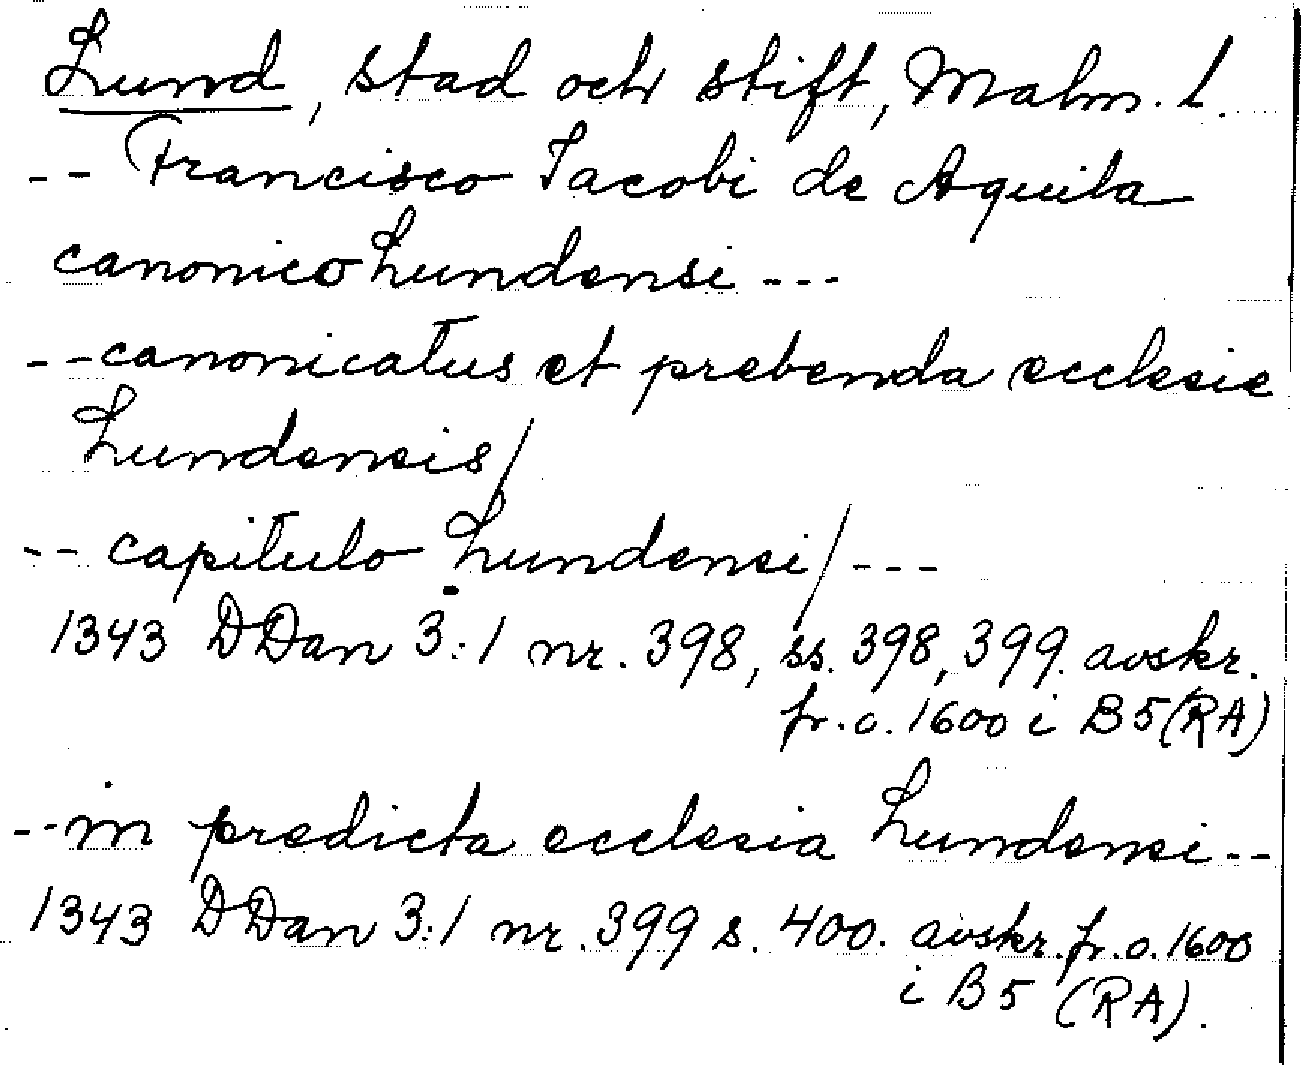 Lund, stad och stift, Malm. l.
-- Francisco Iacobi de Aquila
canonico Lundensi ---
-- canonicatus et prebenda ecclesie
Lundensis/
-- capitulo Lundensi/ ---
1343 DDan 3:1 nr. 398, ss. 398, 399. avskr.
fr. c. 1600 i B5 (RA)
-- in predicta ecclesia Lundensi --
1343 DDan 3:1 nr. 399 s. 400. avskr. fr. c. 1600
i B5 (RA).